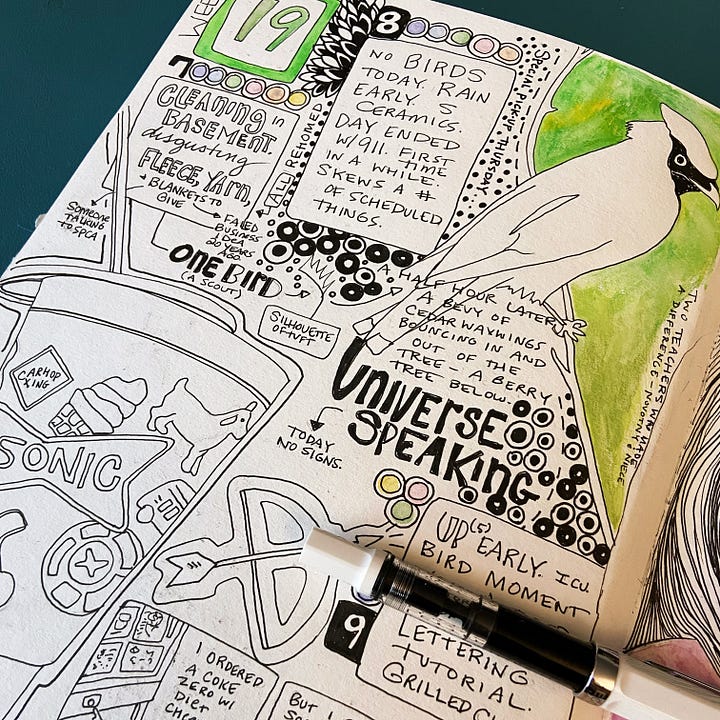 WEE
19
7
CLEANING in
BASEMENT.
disgusting
FLEECE, YARN,
BLANKETS TO
GIVE
FAILED
BUSINESS
IDEA
20 YEARS
AGO
ALL REHOMED
SOMEONE
TALKING
TO SPCA
ONE BIRD
(A SCOUT)
SILHOUETTE
OF TUFT
8
NO BIRDS
TODAY. RAIN
EARLY. S
CERAMICS.
DAY ENDED
W/911. FIRST
TIME
IN A WHILE.
SKEWS A #
OF SCHEDULED
THINGS.
SPECIAL PICKUP THURSDAY
A HALF HOUR LATER
A BEVY OF
CEDAR WAXWINGS
BOUNCING IN AND
OUT OF THE
TREE - A BERRY
TREE BELOW.
UNIVERSE
SPEAKING
TODAY
NO SIGNS.
TWO TEACHERS WHO MADE
A DIFFERENCE - NOVOTNY & NIECE
CARHOP
XING
SONIC
UP(S) EARLY. ICU.
BIRD MOMENT
9
LETTERING
TUTORIAL.
GRILLED
I ORDERED
A COKE
ZERO W/
DIET
BUT I